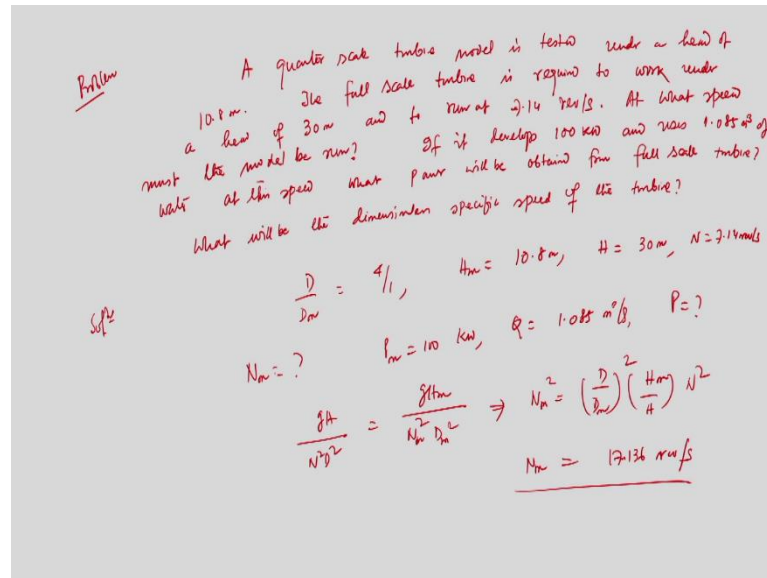 Problem A quarter scale turbine model is tested under a head of
10.8 m. The full scale turbine is required to work under
a head of 30 m and to run at 7.14 rev/s. At what speed
must the model be run? If it develops 100 kW and uses 1.085 m³ of
water at this speed what power will be obtained from full scale turbine?
What will be the dimensionless specific speed of the turbine?
Solⁿ D/Dm = 4/1, Hm = 10.8 m, H = 30 m, N = 7.14 rev/s
Nm = ? Pm = 100 kW, Q = 1.085 m³/s, P = ?
gH/N²D² = gHm/Nm² Dm² ⇒ Nm² = (D/Dm)² (Hm/H) N²
Nm = 17.136 rev/s